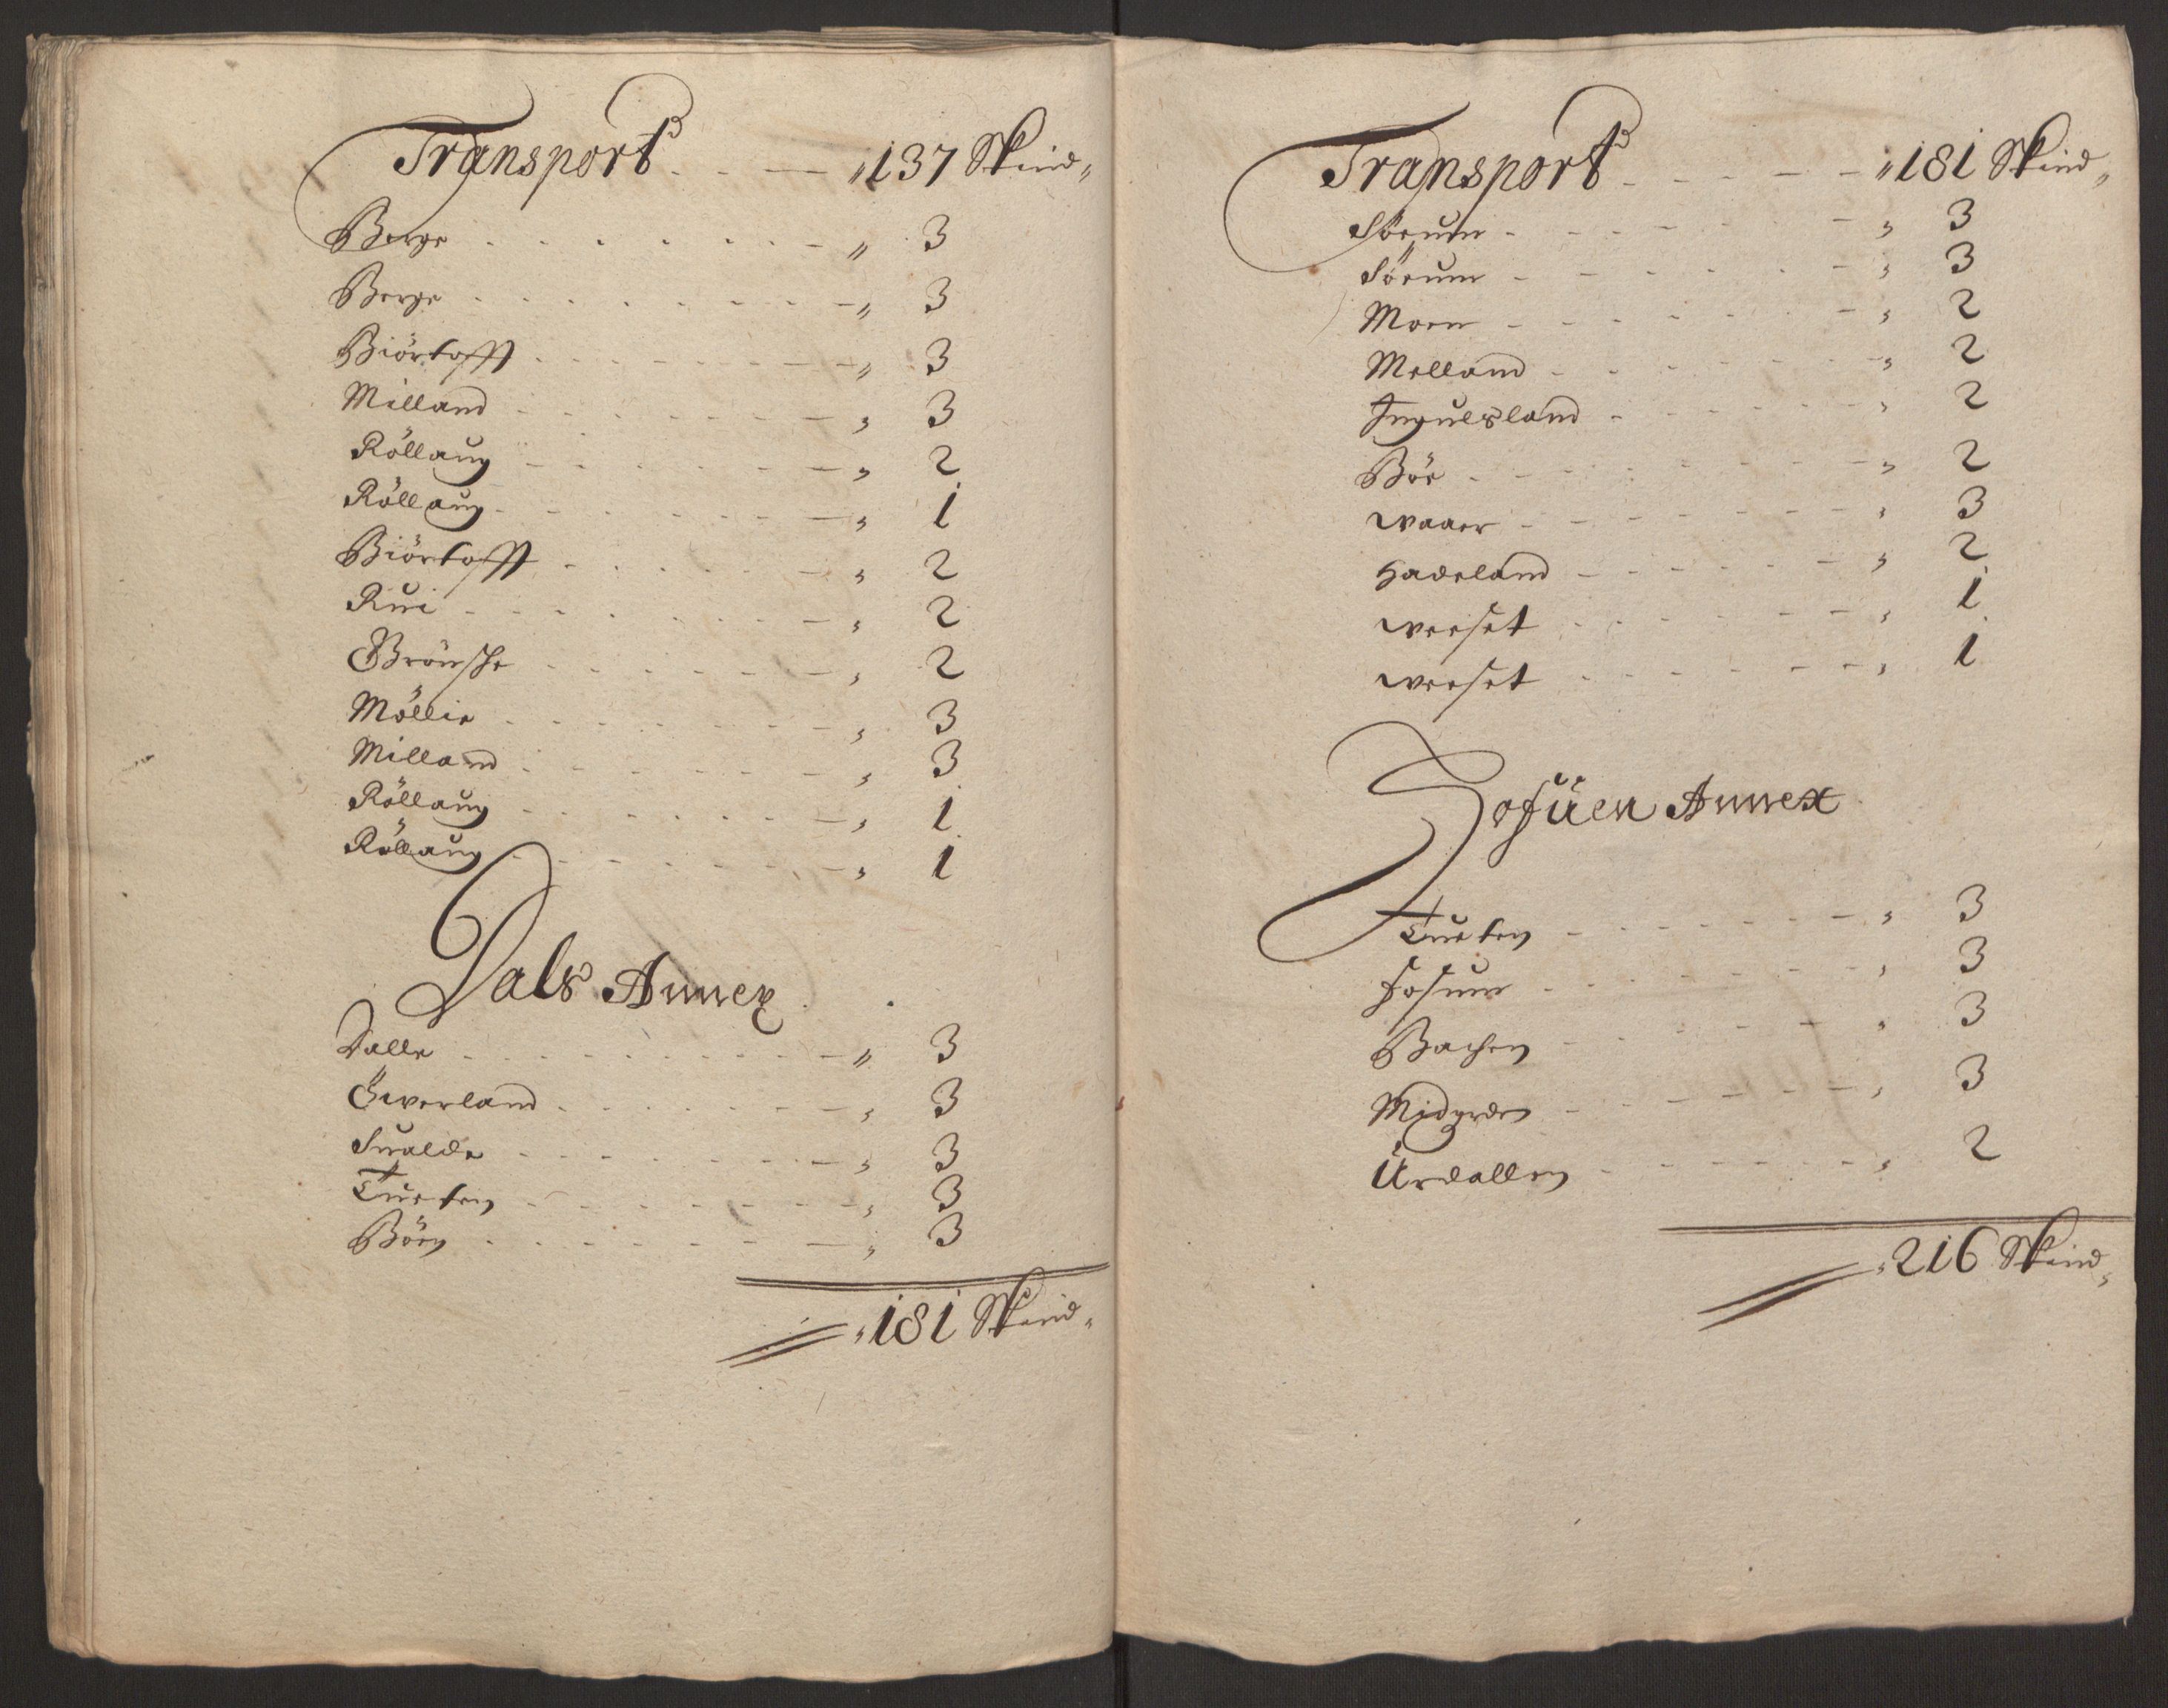 Transport - - — „137 Skind„
Berge - - - „ 3
Berge - - - „ 3
Biörtofft - - - „ 3
Milland - - - „ 3
Röllaug - - - „ 2
Röllaug - - - „ 1
Biörtofft - - - „ 2
Rui - - - „ 2
- - - „ 2
Möllie - - - „ 3
Milland - - - „ 3
Röllaug - - - „ 1
Röllaug - - - „ 1
Dals Annex
Dalle - - - „ 3
Öwerland - - - „ 3
Sualde - - - „ 3
Tueten - - - „ 3
Böen - - - „ 3
„181 Skind„
Transport - - - „181 Skind„
Söeum - - - „ 3
Söeum - - - „ 3
Moen - - - „ 2
Melland - - - „ 2
Ingulsland - - - „ 2
Böe - - - „ 2
waaer - - - „ 3
Hadeland - - - „ 2
weeset - - - „ 1
weeset - - - „ 1
Hofüen Annex
Tueten - - - „ 3
Fosum - - - „ 3
Bachen - - - „ 3
Midgrden - - - „ 3
Ürdallen - - - „ 2
„216 Skind„